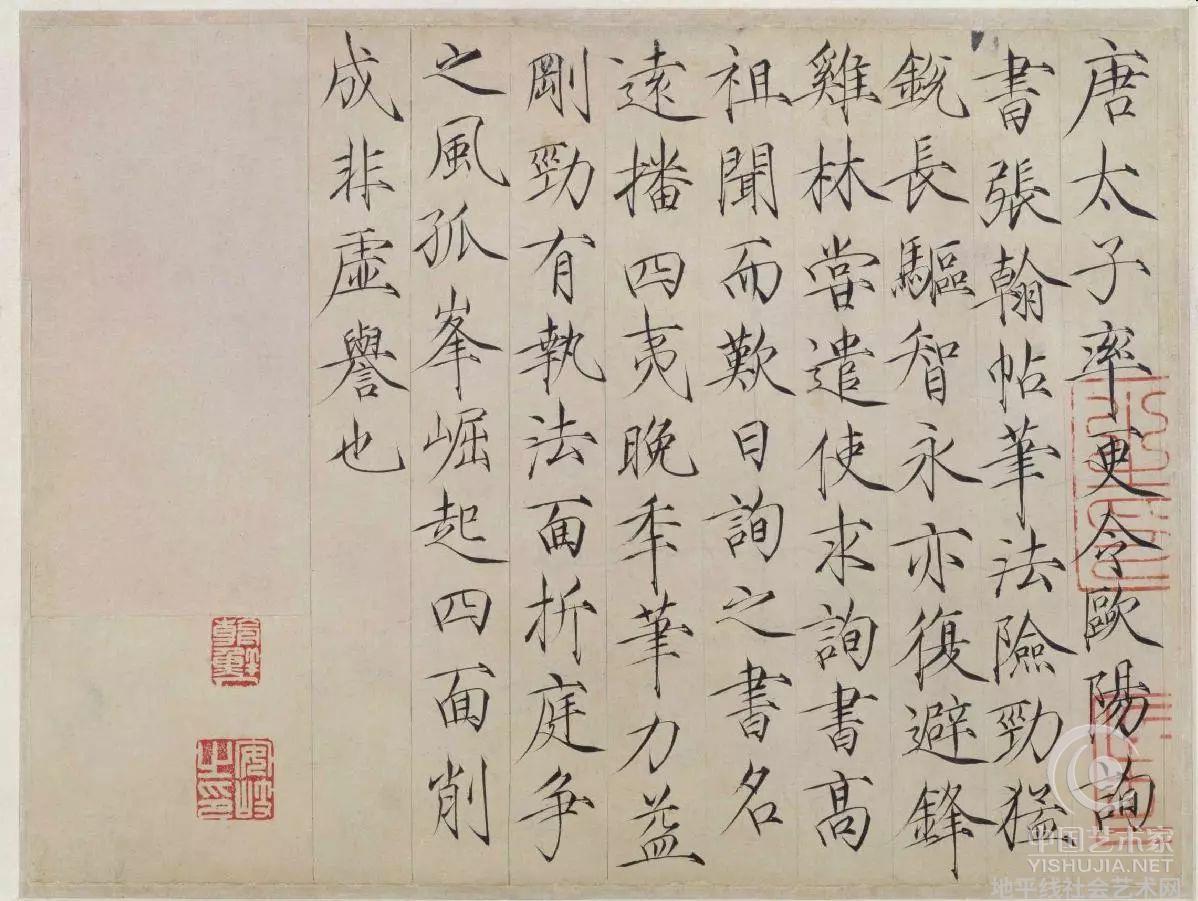 唐太子率更令歐陽詢
書張翰帖筆法險勁猛
銳長驅智永亦復避鋒
雞林嘗遣使求詢書高
祖聞而歎曰詢之書名
遠播四夷晚年筆力益
剛勁有執法面折庭爭
之風孤峯崛起四面削
成非虛譽也
安岐之印
中国艺术家
YISHUJIA.NET
地平线社会艺术网